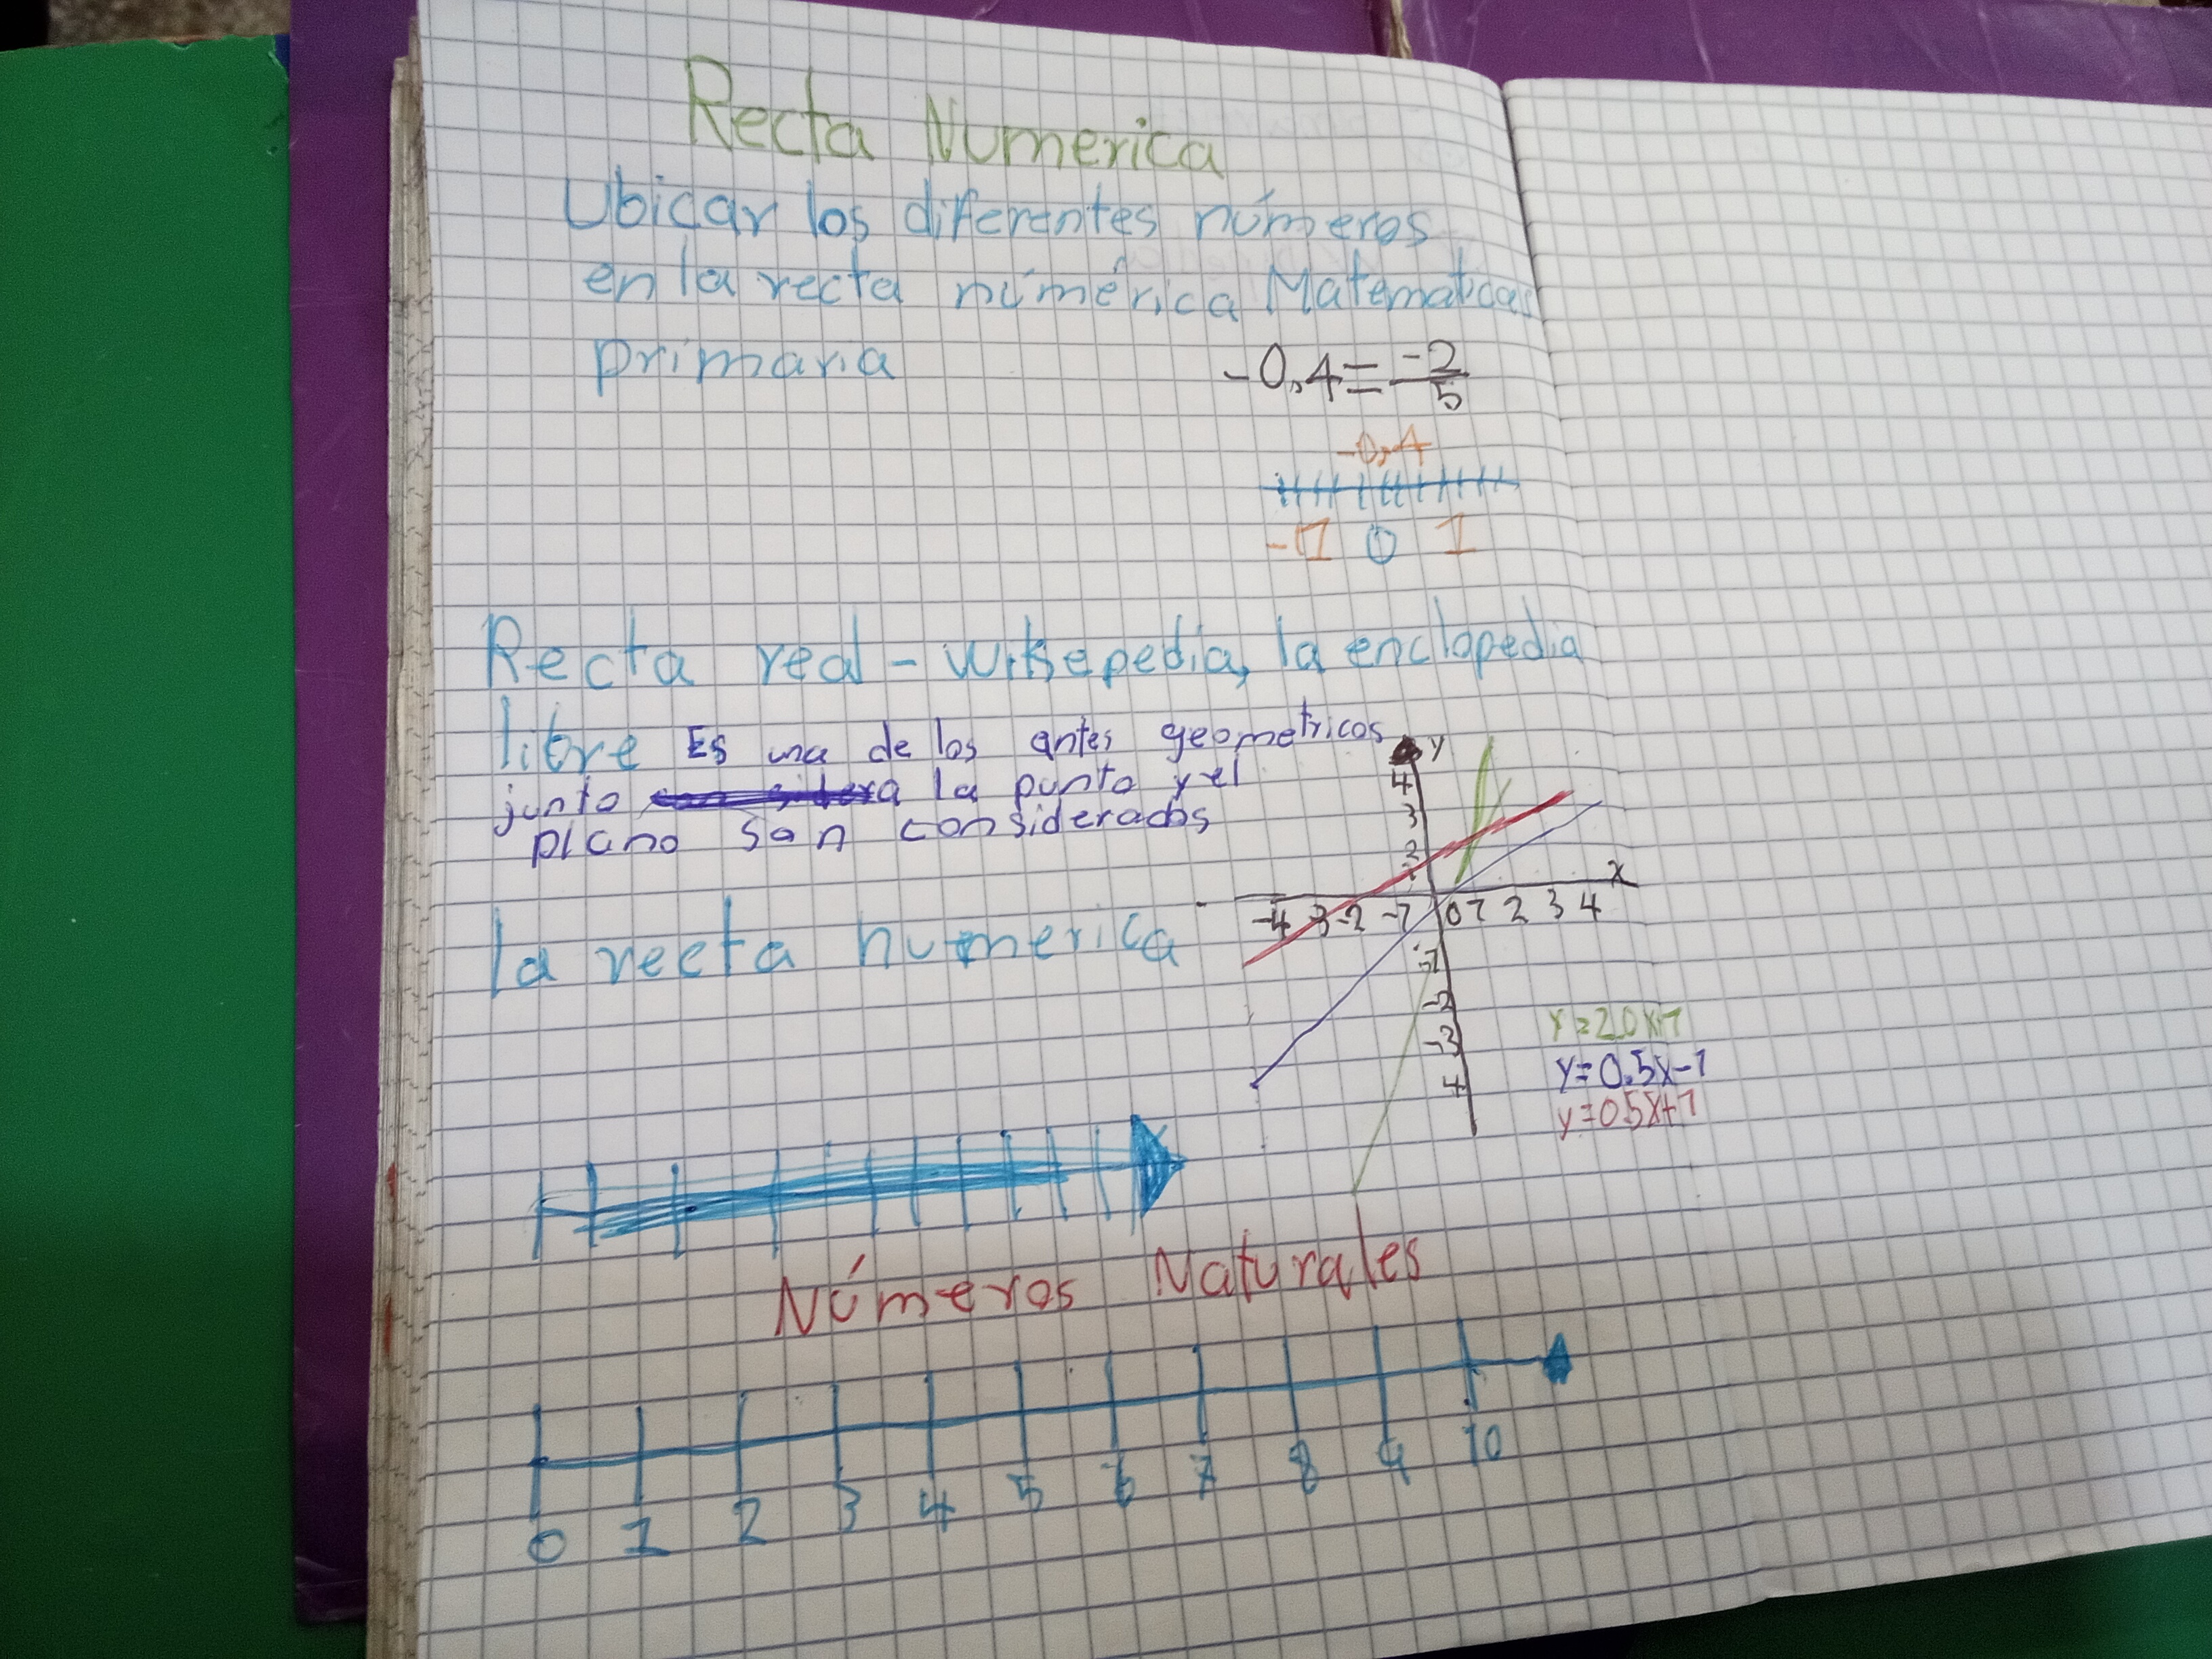 Recta Numerica
Ubicar los diferentes números
en la recta númérica Matematicas
primaria
-0,4=-2/5
-0,4
-1 0 1
Recta real - wikepedia, la enclopedia
libre Es una de los entes geometricos
junto a la punto y el
plano son considerados
y
4
3
2
x
-4 -3 -2 -1 0 1 2 3 4
la recta numerica
-1
-2
-3
4
y=2.0x+1
y=0.5x-1
y=0.5x+1
Números Naturales
0 1 2 3 4 5 6 7 8 9 10